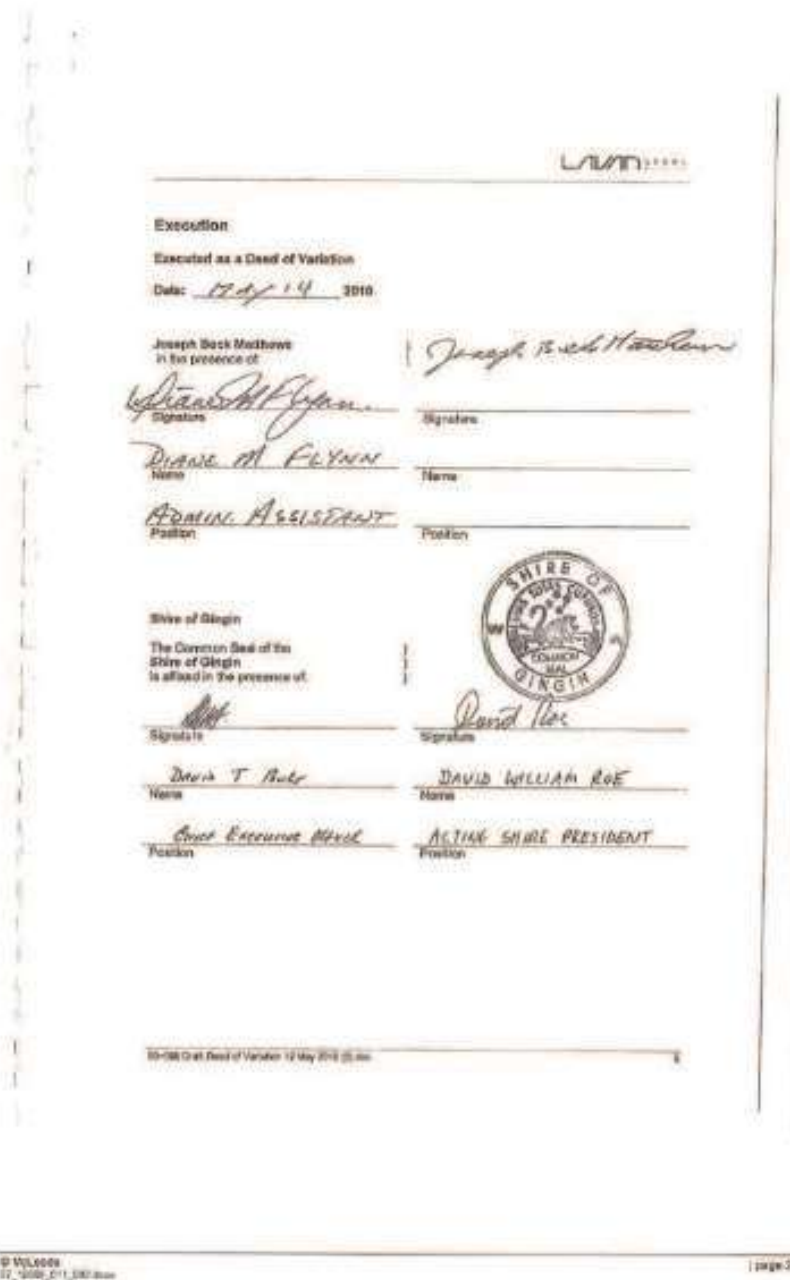 LAVAN
Execution
Executed as a Deed of Variation
Date: May 14 2010
Joseph Beck Matthews
in the presence of:
Joseph Beck Matthews
Diane M Flynn
Signature
Signature
DIANE M FLYNN
Name
Name
ADMIN. ASSISTANT
Position
Position
SHIRE OF
COMMON
SEAL
GINGIN
W
Shire of Gingin
The Common Seal of the
Shire of Gingin
is affixed in the presence of:
David Roe
Signature
Signature
David T
DAVID WILLIAM ROE
Name
Name
Chief Executive Officer
ACTING SHIRE PRESIDENT
Position
Position
Draft Deed of Variation 12 May 2010
© McLeods
| page